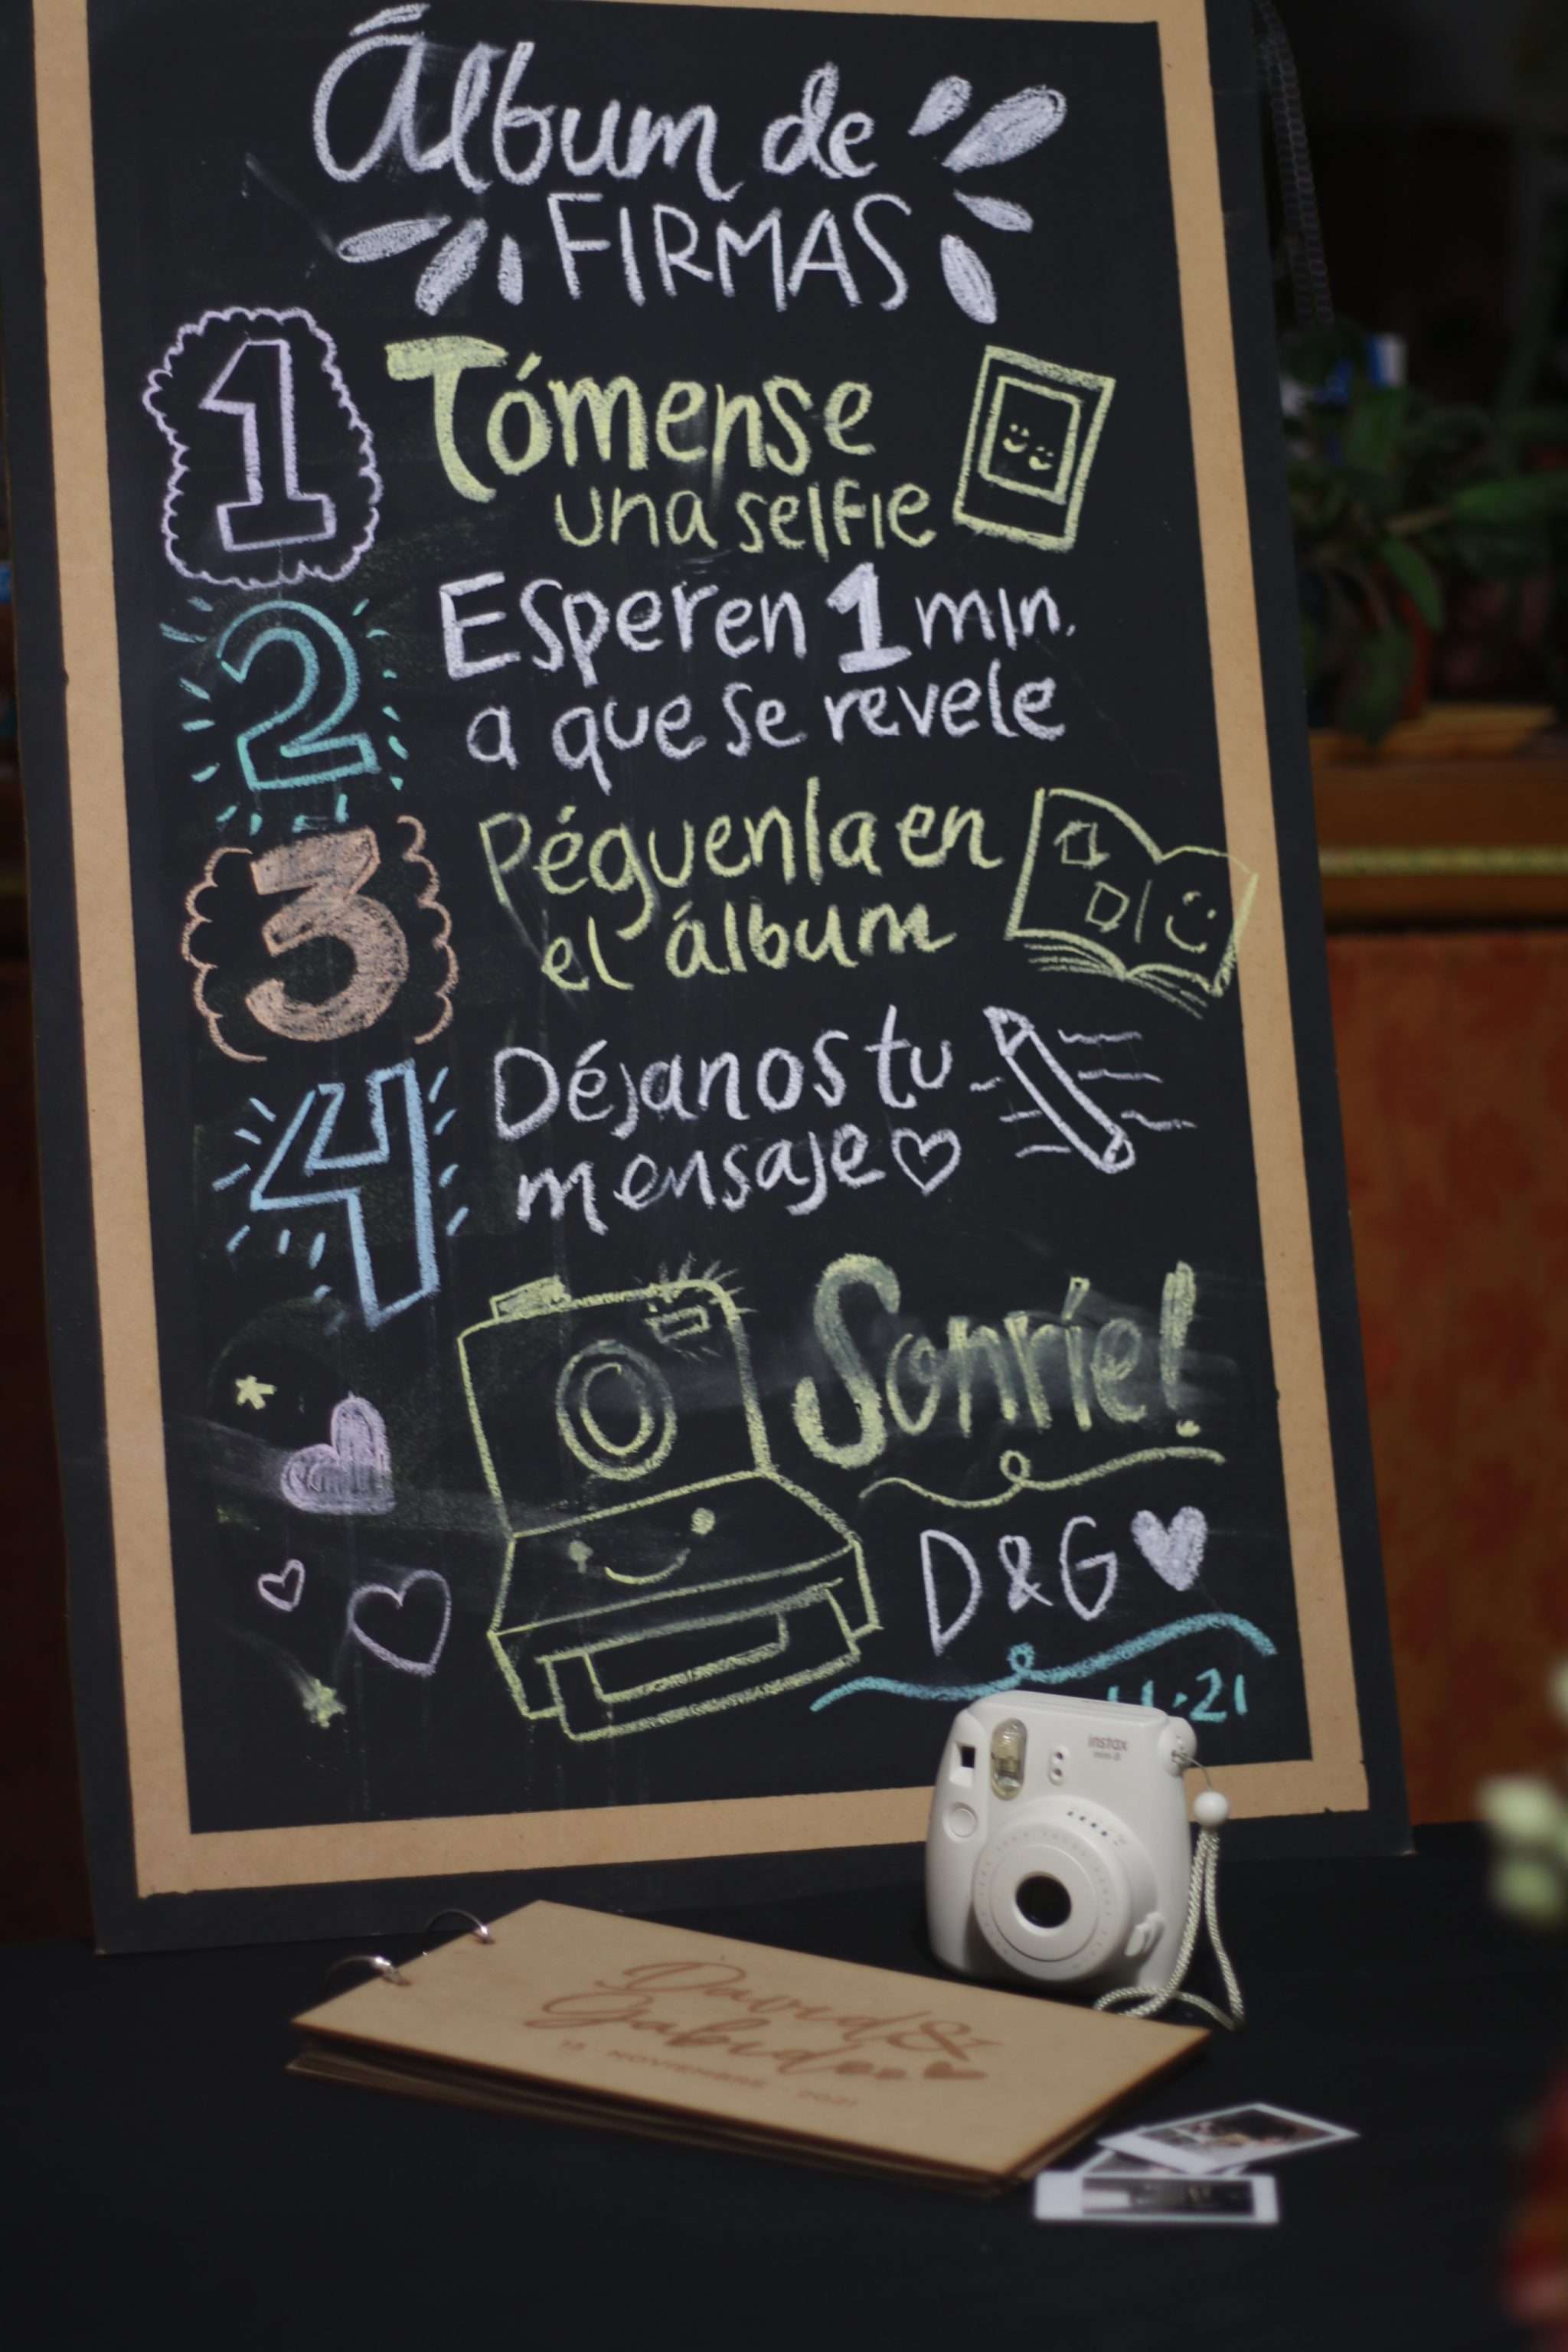 Álbum de
FIRMAS
1 Tómense
una selfie
2 Esperen 1 min.
a que se revele
3 Péguenla en
el álbum
4 Déjanos tu
mensaje
Sonríe!
D&G
11.21
instax
mini 8
David &
Gabidou
13 · NOVIEMBRE · 2021